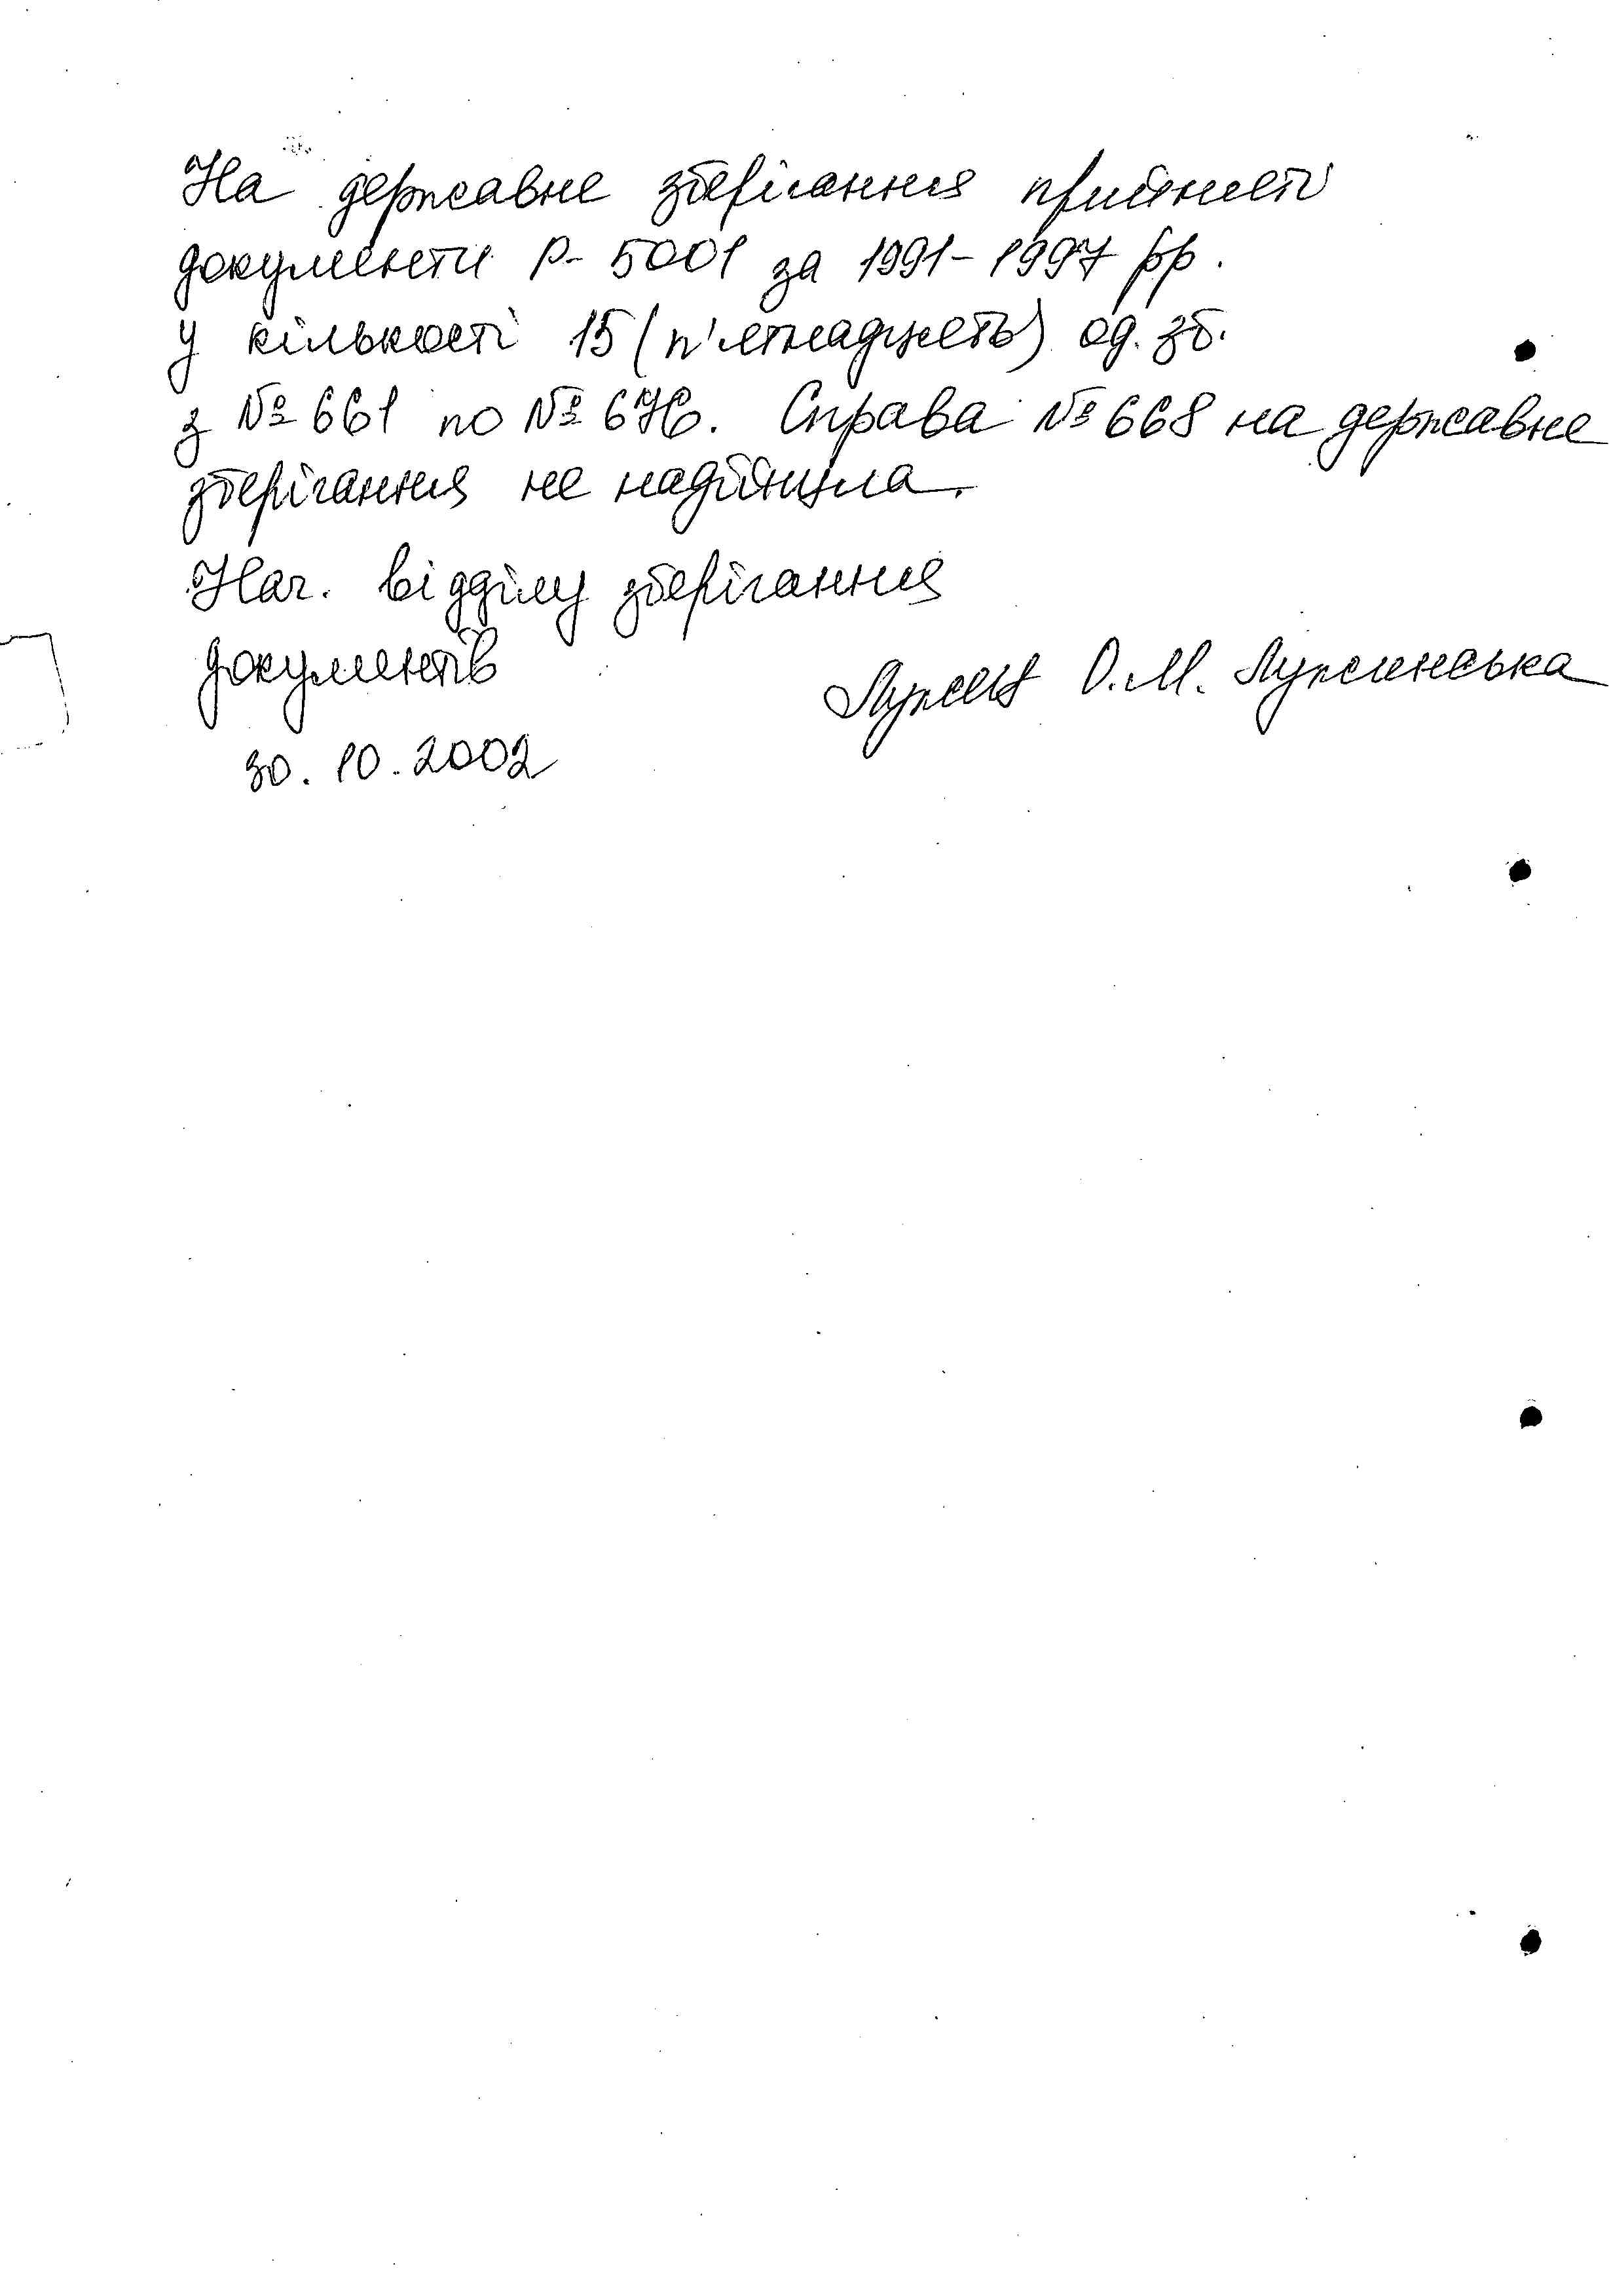 На державне зберігання прийняті
документи Р-5001 за 1991-1997 рр.
у кількості 15 (п'ятнадцять) од. зб.
з № 661 по № 676. Справа № 668 на державне
зберігання не надійшла.
Нач. відділу зберігання
документів О.М. Лужинська
30.10.2002